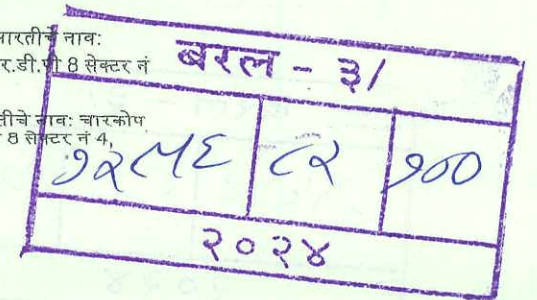 मारतीचे नाव:
र.डी.पी 8 सेक्टर नं
तीचे नाव: चारकोप
8 सेक्टर नं 4,
बरल - ३/
७२५६ ८२ १००
२०२४